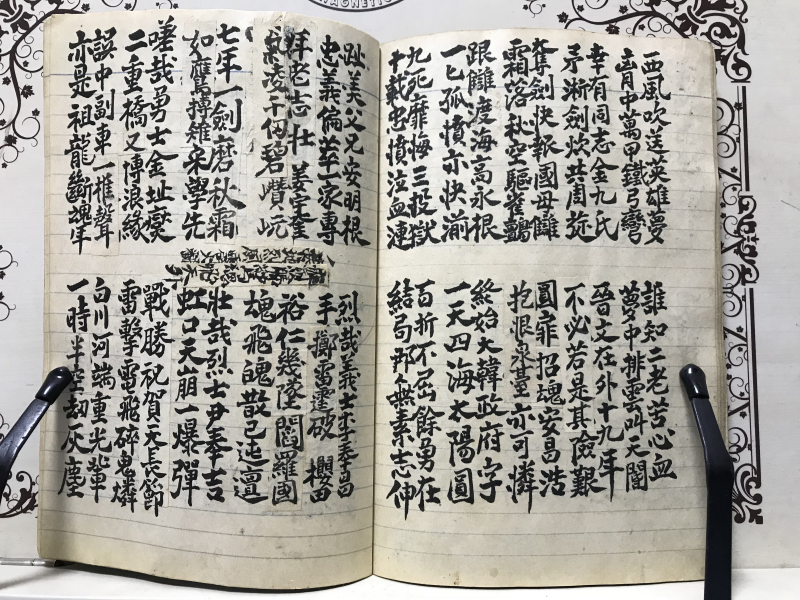 西風吹送英雄夢
胷中萬甲鐵弓彎
幸有同志金九氏
矛淅劍炊共周旋
奪劍快報國母讎
霜落秋空驅雀鸇
跟讎度海高永根
一匕孤憤亦快湔
九死靡悔三投獄
十載忠憤泣血漣
誰知二老苦心血
夢中排雲叫天閽
晉文在外十九年
不必若是其險艱
圓靡招魂安昌浩
抱恨泉臺亦可憐
終始大韓政府字
一天四海太陽圓
百折不屈餘勇在
結局那無素志伸
趾美父兄安明根
忠義倫萃一家專
拜老志壯 姜宇奎
氣凌千仞碧巑岏
七年一劍磨秋霜
如鷹搏雉宋學先
嗟哉勇士金址燮
二重橋又博浪緣
誤中副車一椎聲
亦是祖龍斷魂年
烈哉義士李奉昌
手擲雷霆破 櫻田
裕仁幾墜閻羅國
魂飛魄散已迍邅
壯哉烈士尹奉吉
虹口天崩一爆彈
戰勝祝賀天長節
雷擊雷飛碎鬼燐
白川河端重光輩
一時半空劫灰塵